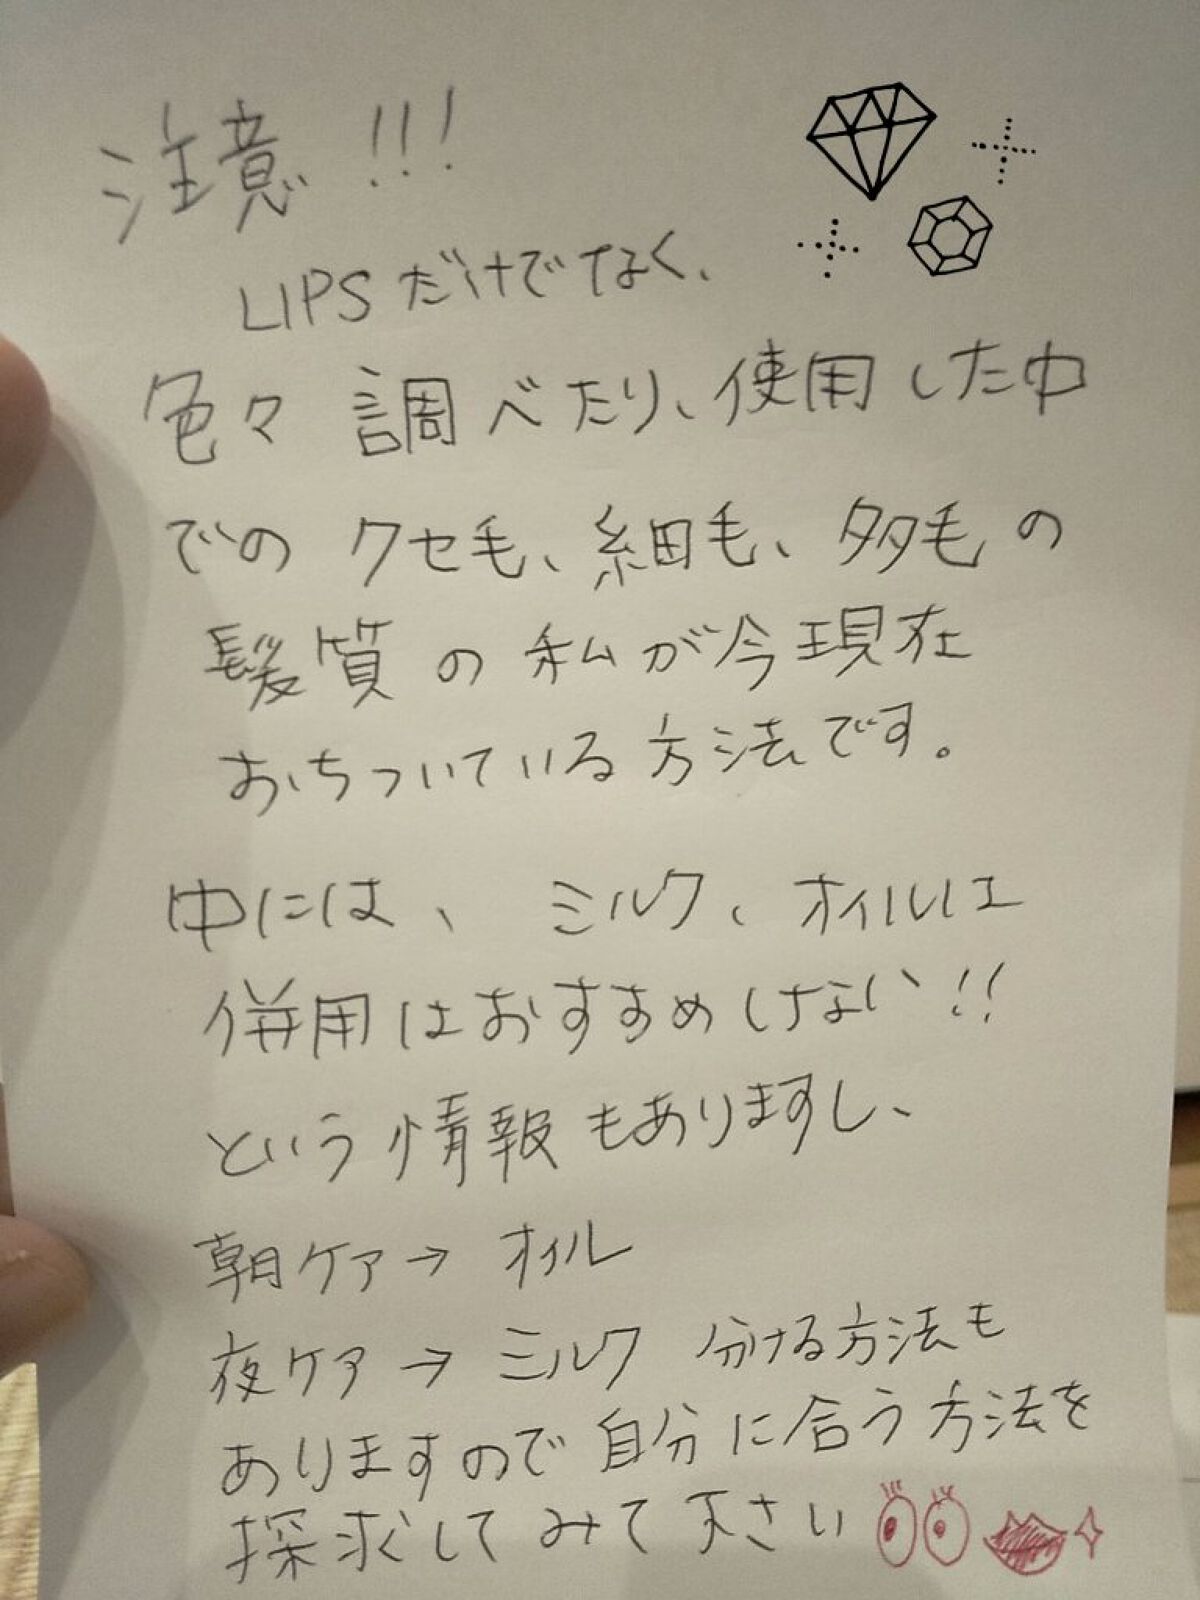 注意!!!
LIPSだけでなく、
色々調べたり、使用した中
での クセ毛、細毛、多毛の
髪質の私が今現在
おちついている方法です。
中には、ミルク、オイルは
併用はおすすめしない!!
という情報もありますし、
朝ケア→オイル
夜ケア→ミルク 分ける方法も
ありますので自分に合う方法を
探求してみて下さい